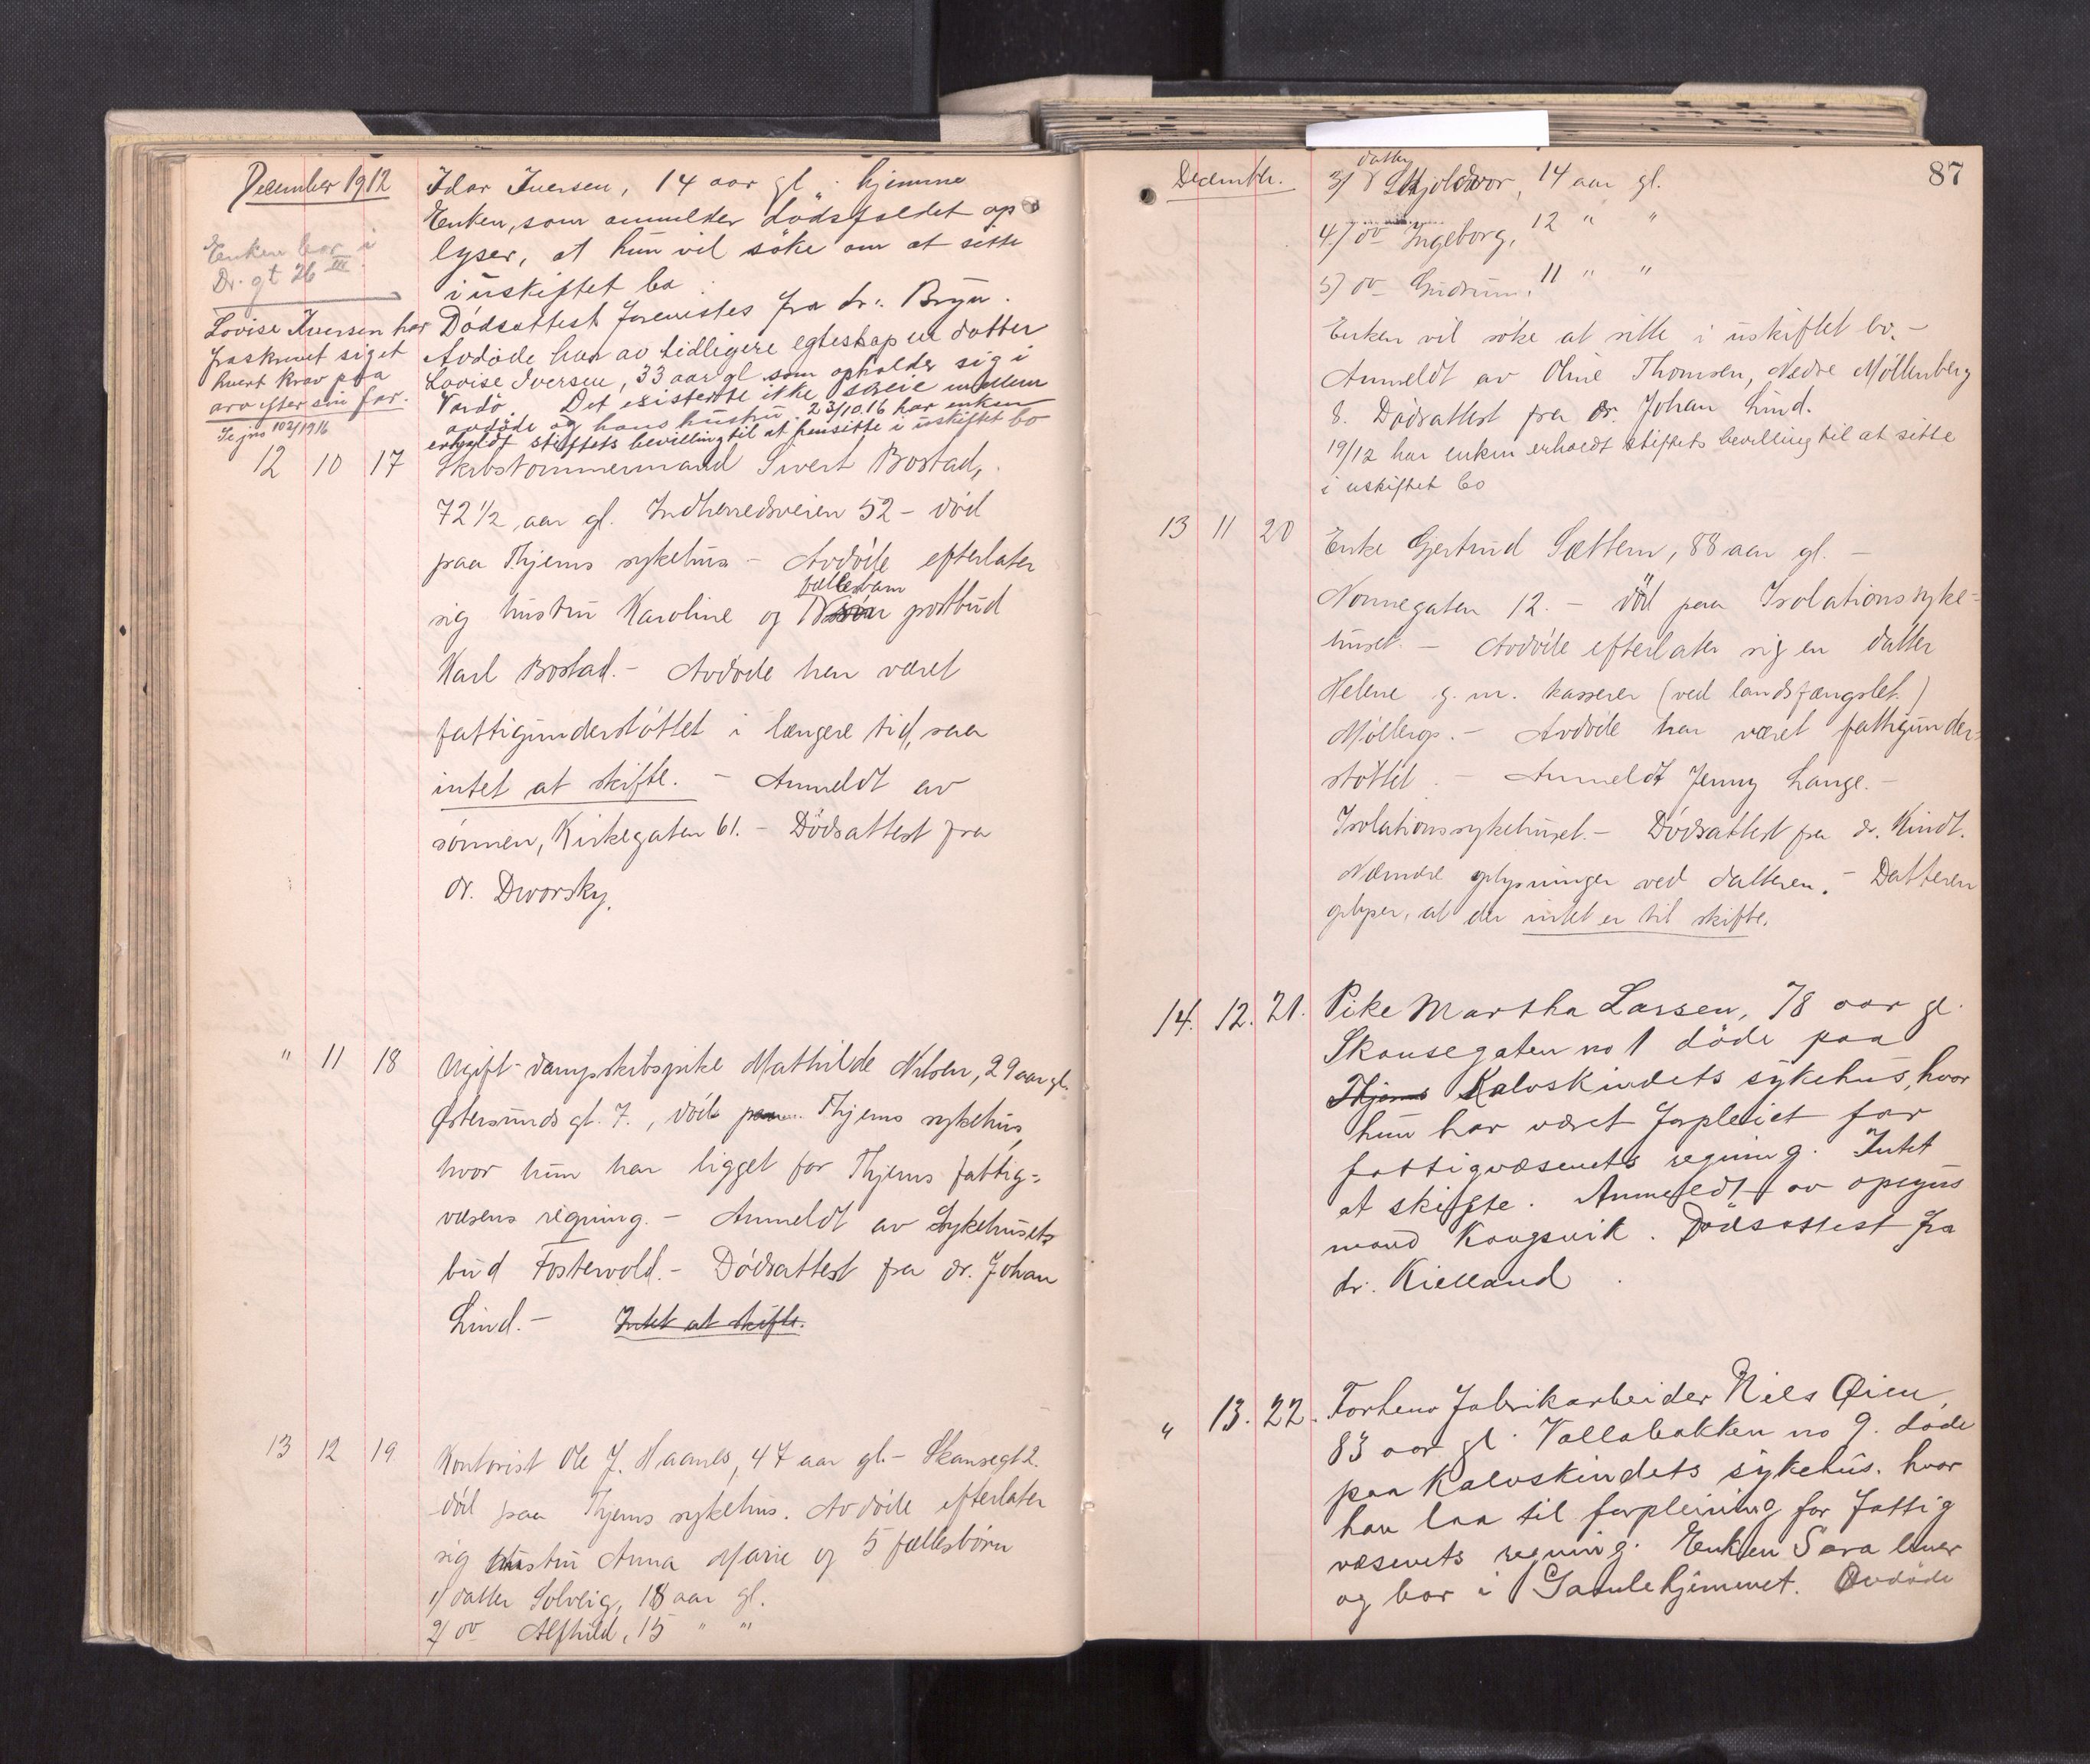 December 1912
Idar Iversen, 14 aar gl, hjemme
Enken, som anmelder dödsfaldet op
lyser, at hun vil söke om at sitte
i uskiftet bo
Enken bor i
Dr. gt 26 III
Dödsattest forevistes fra dr. Bryn.
Avdöde har av tidligere egteskap en datter
Lovise Iversen, 33 aar gl som opholder sig i
Vardö. Det existerte ikke særeie mellem
avdöde og hans hustru. 23/10.16 har enken
erholdt stiftets bevilling til at hensitte i uskiftet bo
Lovise Iversen har
fraskrevet sig et
hvert krav paa
arv efter sin far.
Se jns 102/1916
12 10 17 Skibstømmermand Sivert Bostad,
72 1/2 aar gl. Indherredsveien 52 - död
paa Thjems sykehus - Avdöde efterlater
fællesbarn
sig hustru Karoline og sön postbud
Karl Bostad. - Avdöde har været
fattigunderstöttet i længere tid, saa
intet at skifte. - Anmeldt av
sönnen, Kirkegaten 61. - Dödsattest fra
dr. Dworsky.
" 11 18 Ugift dampskibspike Mathilde Nilsen, 29 aar gl.
Østersunds gt. 7., död paa Thjems sykehus,
hvor hun har ligget for Thjems fattig=
væsens regning. - Anmeldt av Sykehusets
bud Fosterwold. - Dödsattest fra dr. Johan
Lind. - Intet at skifte.
13 12 19 Kontorist Ole J. Haanes, 47 aar gl. - Skansegt 2.
död paa Thjems sykehus. Avdöde efterlater
sig hustru Anna Marie og 5 fællesbörn
1/ datter Solveig, 18 aar gl.
2/ do Alfhild, 15 " "
87
Decembr.
datter
3/ Skjoldvor, 14 aar gl.
4/ do Ingeborg, 12 " "
5/ do Gudrun, 11 " "
Enken vil söke at sitte i uskiftet bo. -
Anmeldt av Oline Thomsen, Nedre Möllenberg
8. Dödsattest fra dr. Johan Lind.
19/12 har enken erholdt stiftets bevilling til at sitte
i uskiftet bo
13 11 20 Enke Gjertrud Sættem, 88 aar gl. -
Nonnegaten 12. - död paa Isolationssyke=
huset. - Avdöde efterlater sig en datter
Helene g. m. kasserer (ved landsfængslet.)
Möllerop. - Avdöde har været fattigunder=
støttet. - Anmeldt Jenny Lange. -
Isolationssykehuset. - Dödsattest fra dr. Kindt.
Nærmere oplysninger ved datteren. - Datteren
oplyser, at der intet er til skifte.
14. 12. 21. Pike Martha Lassen, 78 aar gl.
Skansegaten no 1 döde paa
Thjems Kalvskindets sykehus, hvor
hun har været forpleiet for
fattigvæsenets regning. Intet
at skifte. Anmeldt av opsyns
mand Kongsvik. Dödsattest fra
dr. Kielland
" 13. 22. Forhenv fabrikarbeider Nils Øien,
83 aar gl. Vollabakken no 9. döde
paa Kalvskindets sykehus. hvor
han laa til forpleining for fattig
væsenets regning. Enken Sara lever
og bor i Gamlehjemmet. Avdöde